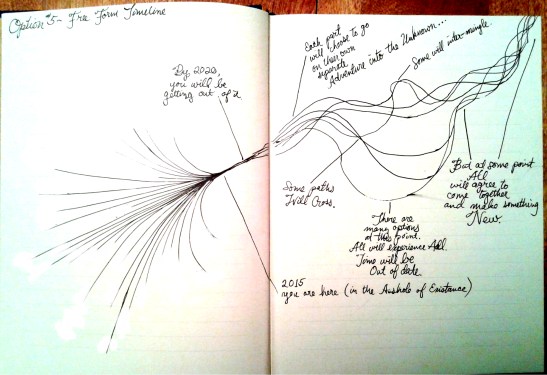 Option #5 - Free Form Timeline
"By 2020,
you will be
getting out of it
Each part
will choose to go
on their own
separate
Adventure into the Unknown...
Some will inter-mangle.
Some paths
Will Cross.
But at some point
All
will agree to
come together
and make something
New.
There are
many options
at this point.
All will experience All.
Time will be
Out of date
2015
you are here (in the Asshole of Existance)